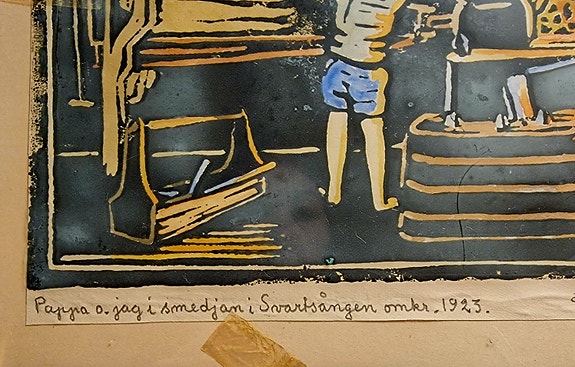 Pappa o. jag i smedjan i Svartsången omkr. 1923.